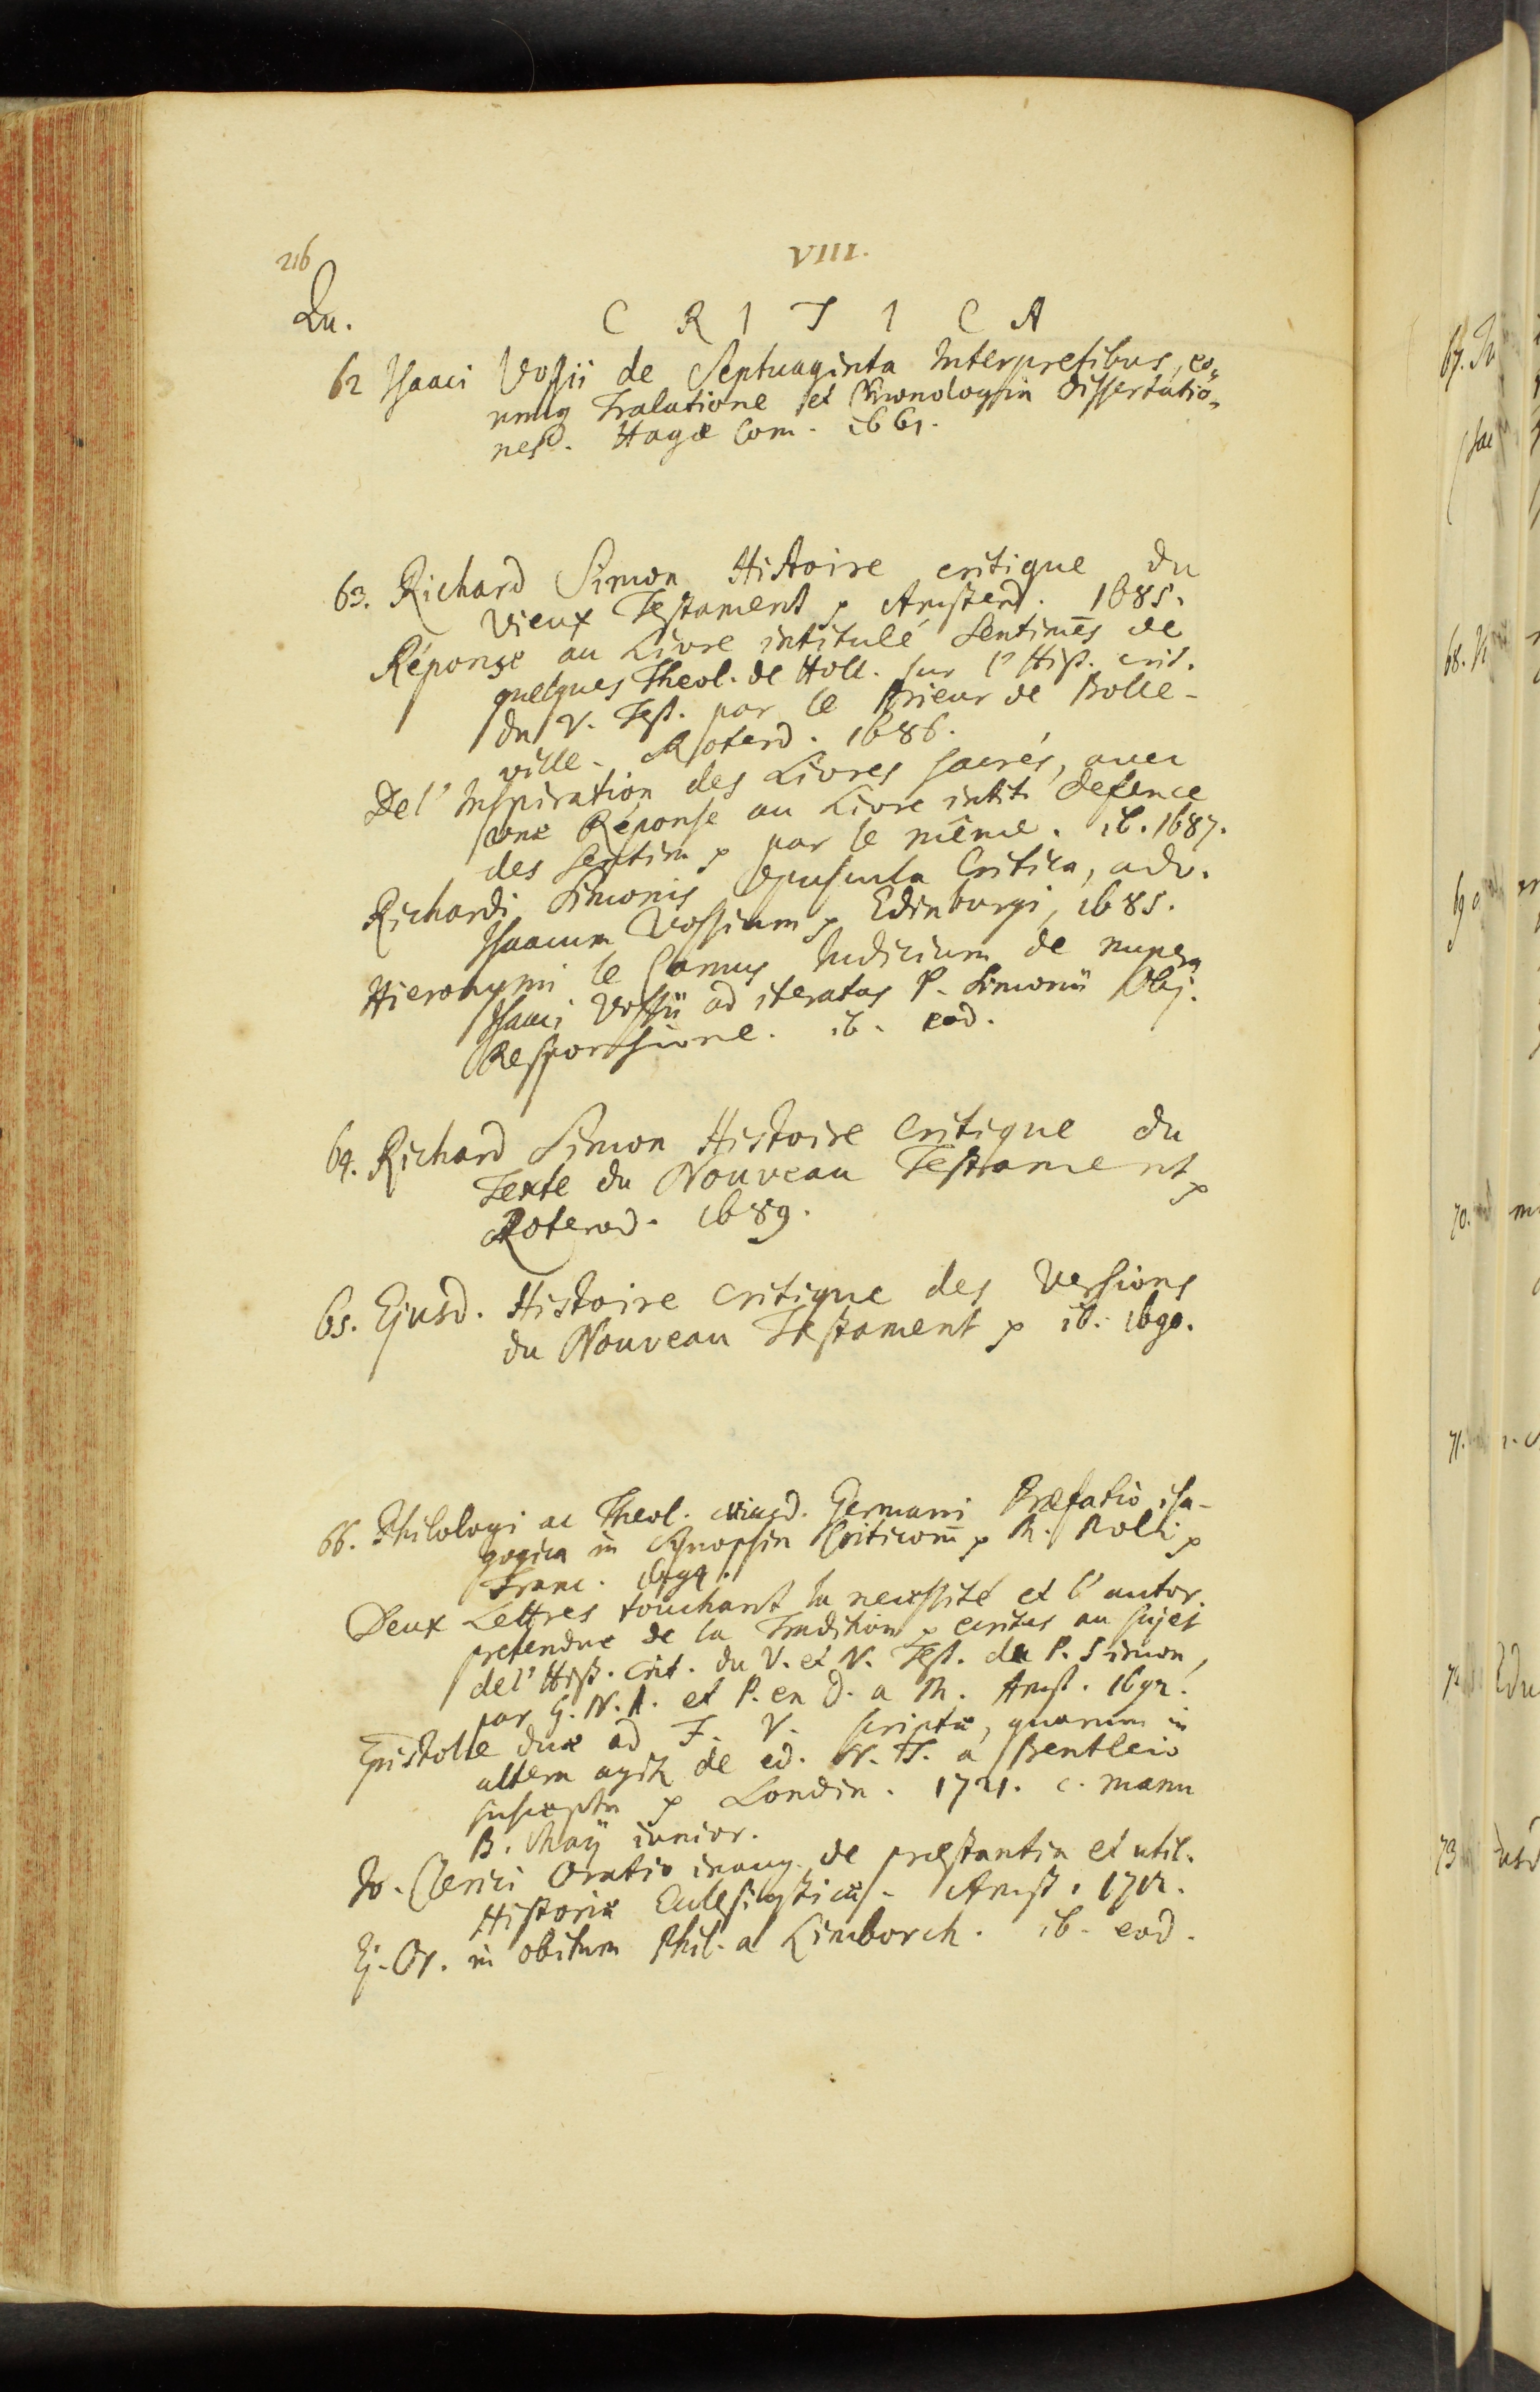 216
VIII.
Qu.
C R I T I C A
62 Isaaci Vossii de Septuaginta Interpretibus, eo-
rumq Tralatione et Chronologia Dissertatio-
nes. Hagæ Com. 1661.
63. Richard Simon Histoire critique du
Vieux Testament p Amsterd. 1685.
Réponse au Livre intitulé Sentimēs de
quelques Theol. de Holl. sur l'Hist. crit.
du V. Test. par le Prieur de Bolle-
ville. Roterd. 1686.
De l'Inspiration des Livres sacrés, avec
une Réponse au Livre intit. Defence
des Sentim p par le même. ib. 1687.
Richardi Simonis opuscula Critica, adv.
Isaacum Vossium p Edinburgi, 1685.
Hieronymi le Camus Iudicium de nupera
Isaaci Vossii ad iteratas P. Simonii Obj.
Responsione. ib. eod.
64. Richard Simon Histoire Critique du
Texte du Nouveau Testament p
Roterod. 1689.
65. Ejusd. Histoire Critique des Versions
du Nouveau Testament p ib. 1690.
66. Philologi ac Theol. cuiusd. Germani Præfatio isa-
gogica in Synopsin Criticorū p M. Poli p
Franc. 1694.
Deux Lettres touchant la necessité et l'autor.
pretendue de la Tradition p ecrites au sujet
de l'Hist. Crit. du V. et N. Test. du P. Simon,
par G. N. A. et P. en D. a M. Amst. 1692.
Epistolæ duæ ad F. V. scriptæ, quarum in
altera agit de ed. N. T. a Bentleio
suscepta p Londin. 1721. c. manu
B. Maÿ iunior.
Jo. Clerici Oratio inaug. de præstantia et util.
Historiæ Ecclesiasticæ. Amst. 1712.
Ej. Or. in obitum Phil. a Limborch. ib. eod.